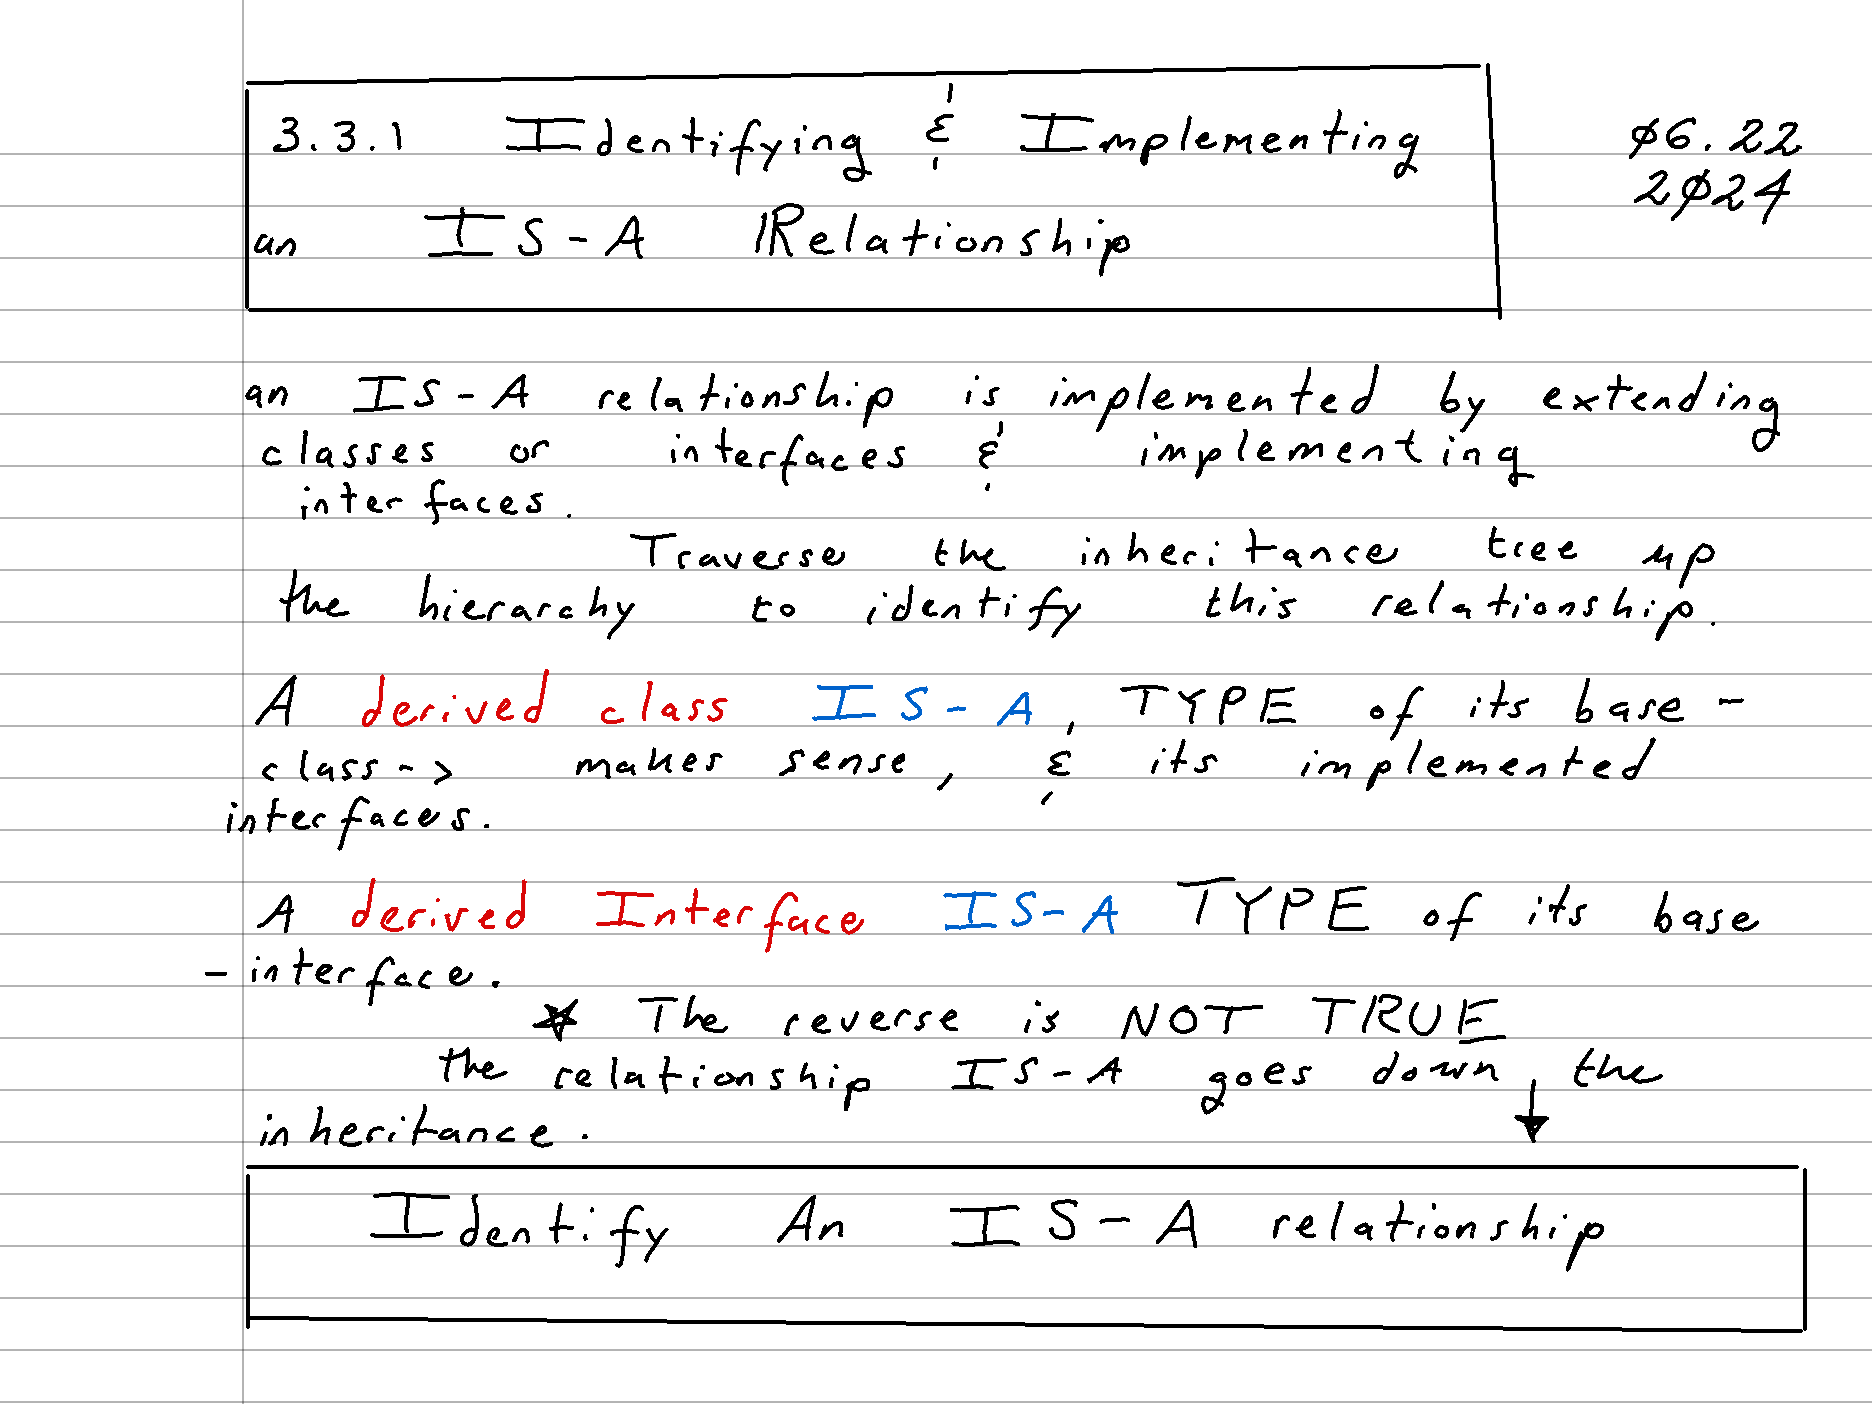 3.3.1 Identifying & Implementing
an IS-A Relationship
06.22
2024
an IS-A relationship is implemented by extending
classes or interfaces & implementing
interfaces.
Traverse the inheritance tree up
the hierarchy to identify this relationship.
A derived class IS-A, TYPE of its base-
class-> makes sense, & its implemented
interfaces.
A derived Interface IS-A TYPE of its base
-interface.
★ The reverse is NOT TRUE
the relationship IS-A goes down ↓ the
inheritance.
Identify An IS-A relationship